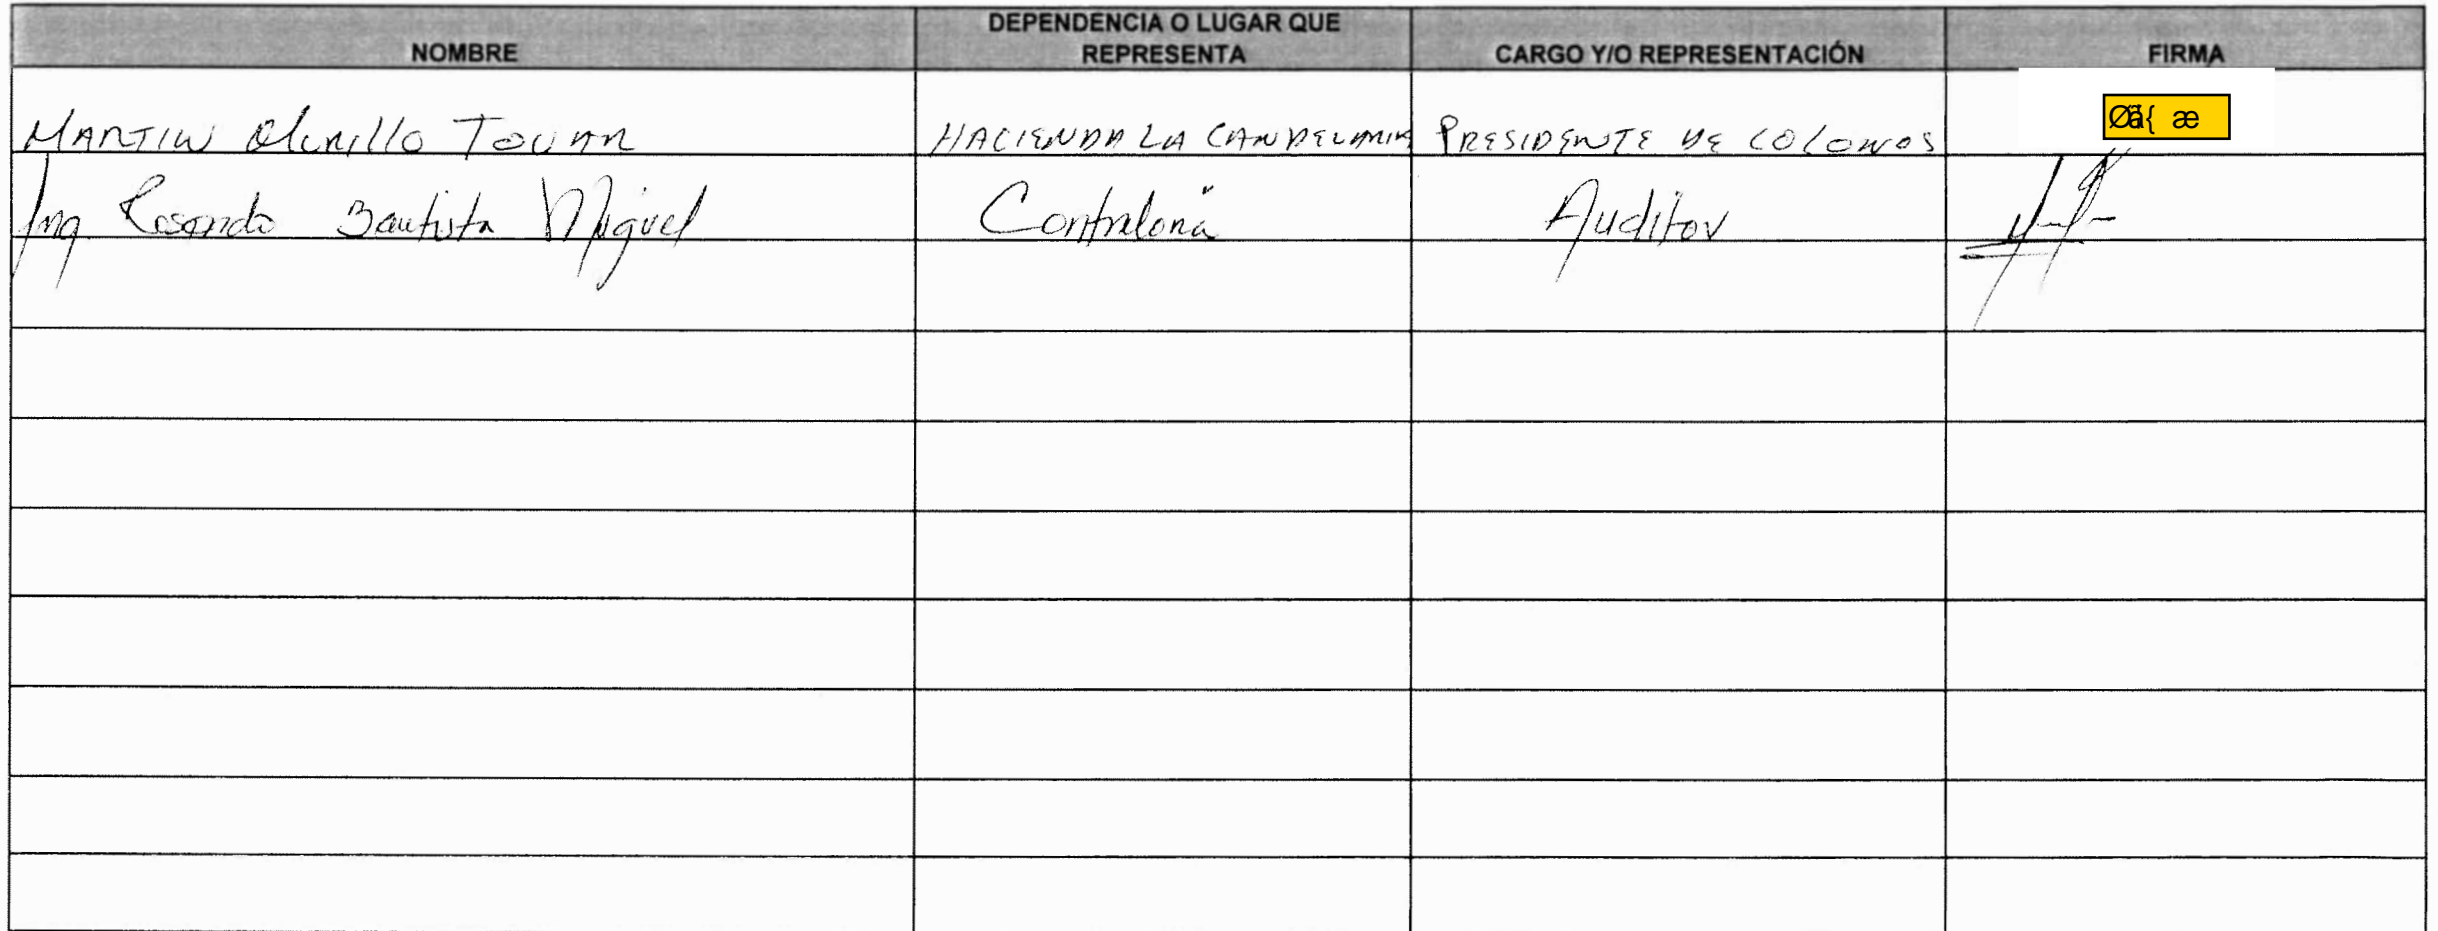 NOMBRE
DEPENDENCIA O LUGAR QUE
REPRESENTA
CARGO Y/O REPRESENTACIÓN
FIRMA
MARTIN Murillo TOVAR
HACIENDA LA CANDELARIA
PRESIDENTE DE COLONOS
Ing Rosendo Bautista Miguel
Contraloría
Auditor